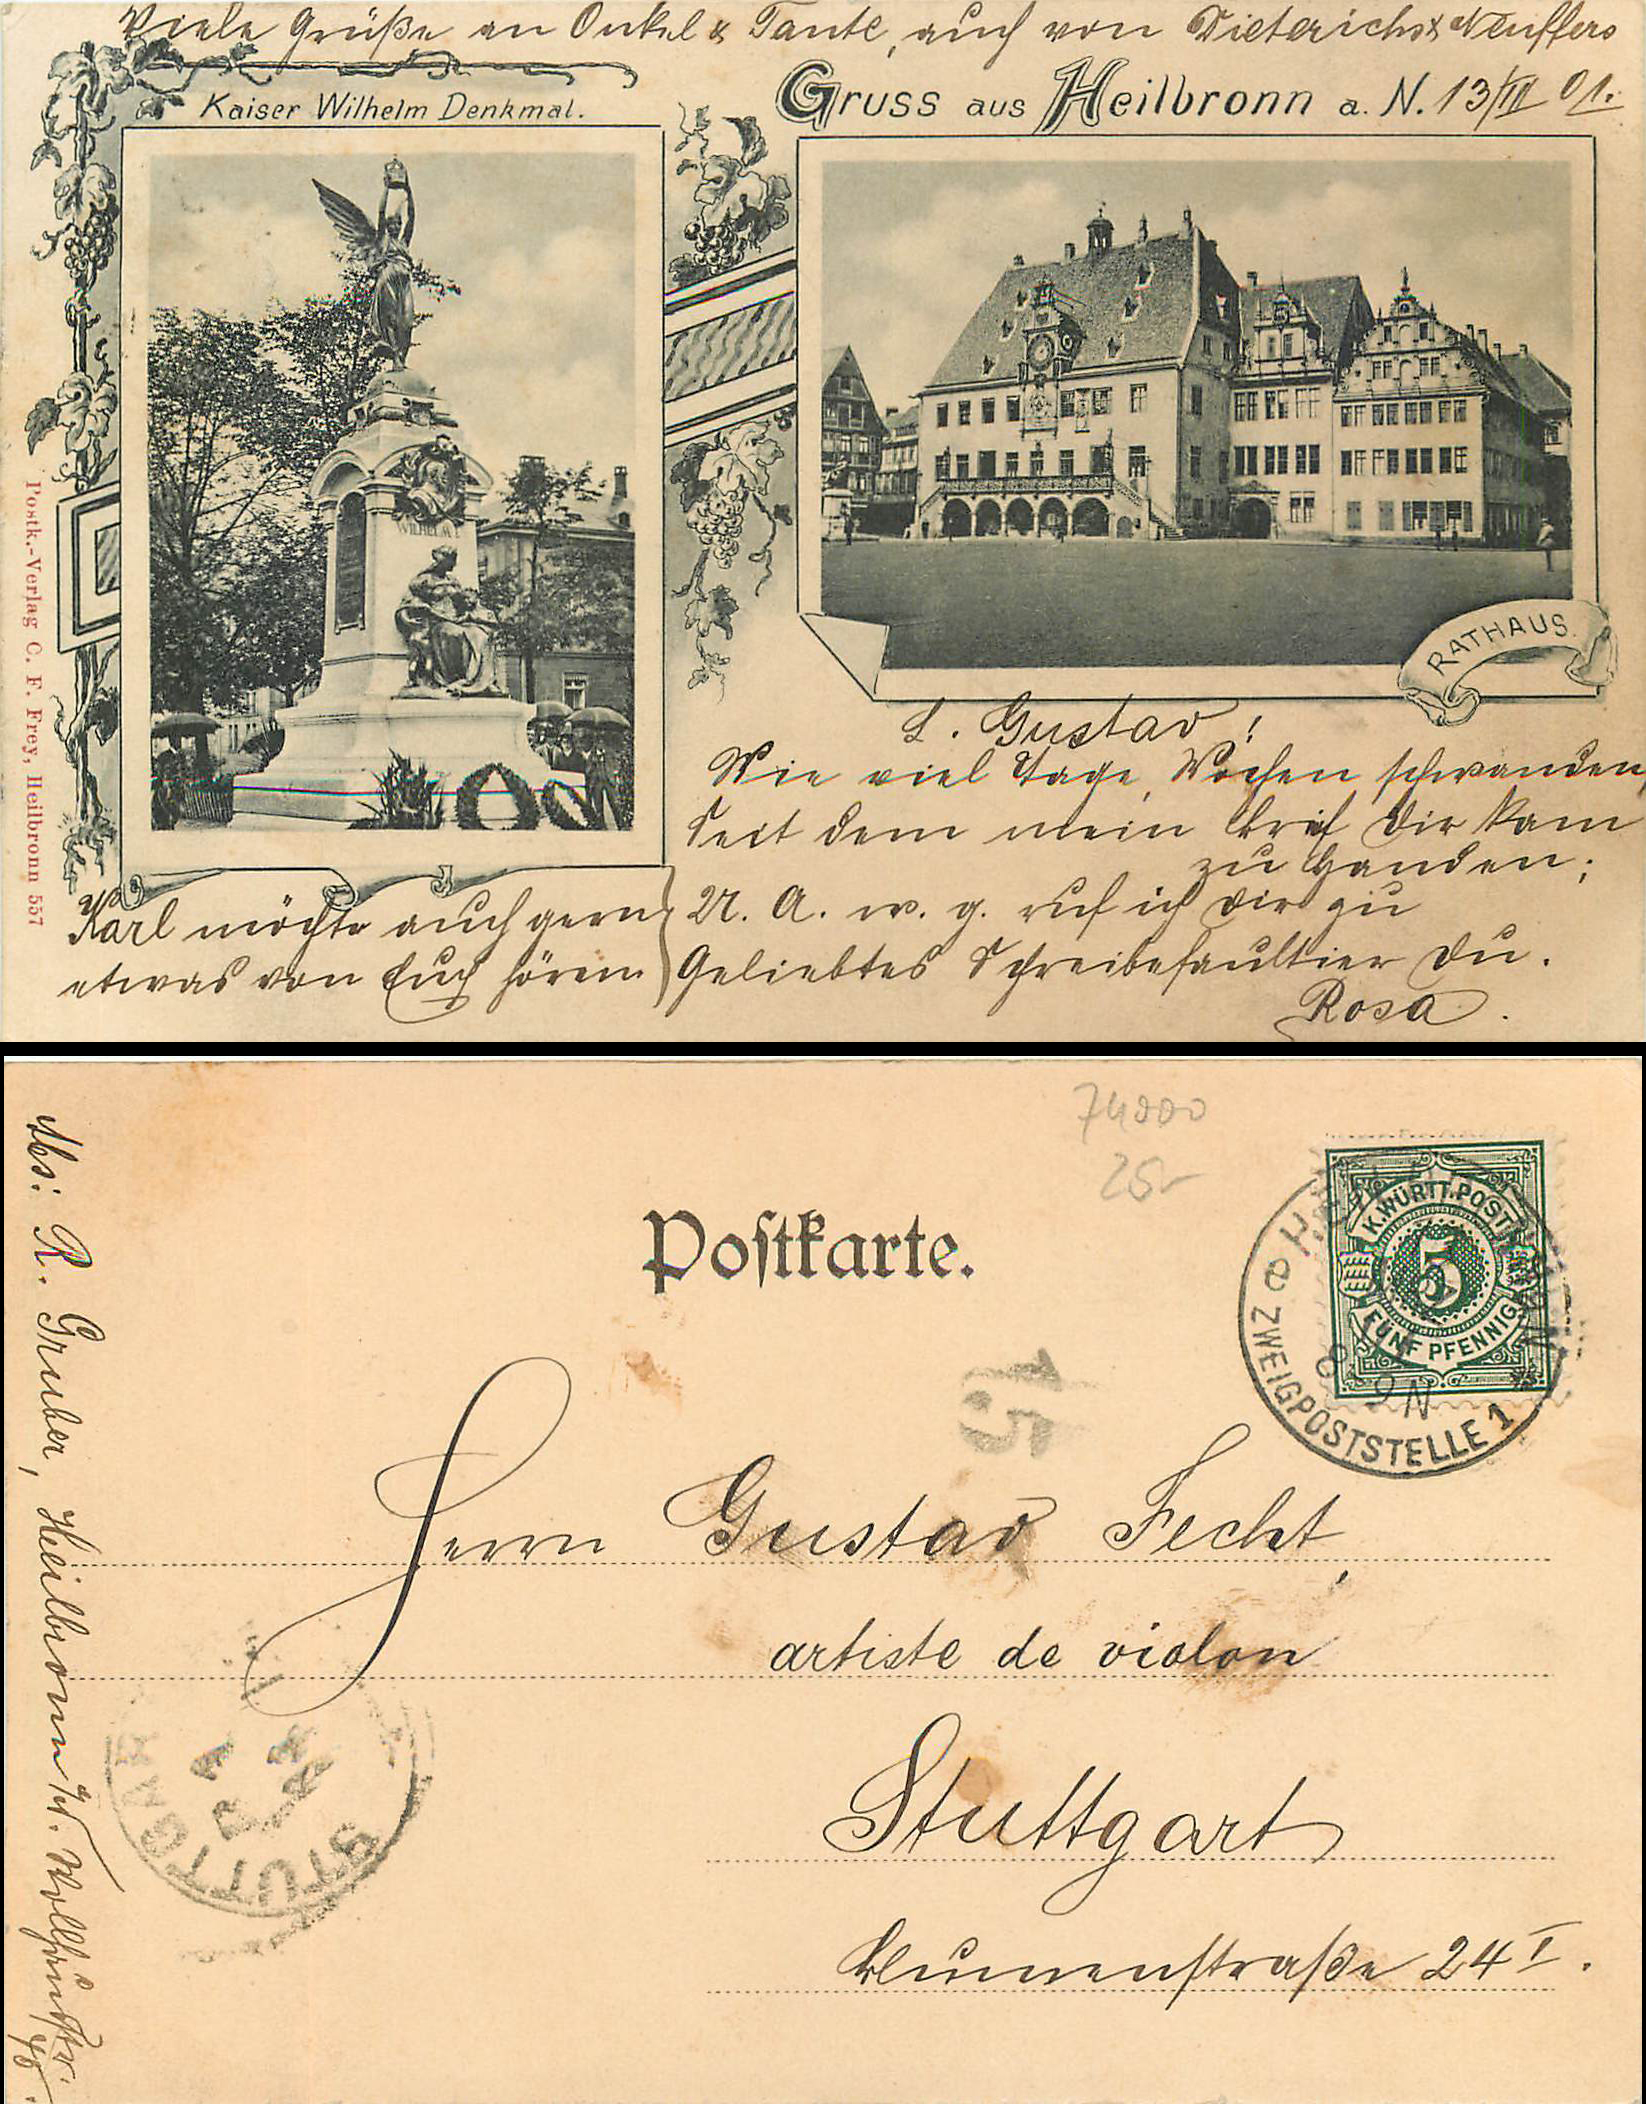 Viele Grüße an Onkel & Tante, auch von Dieterichs & Neuffers
Kaiser Wilhelm Denkmal.
Gruss aus Heilbronn a. N. 13/III 01.
WILHELM I.
RATHAUS.
Postk.-Verlag C. F. Frey, Heilbronn 557
L. Gustav!
Wie viel Tage, Wochen schwanden,
seit dem mein Brief Dir kam
zu Handen;
U. A. w. g. ruf ich Dir zu
Geliebtes Schreibefaultier Du.
Rosa.
Karl möchte auch gern
etwas von Euch hören
74000
25-
Postkarte.
K. WÜRTT. POST
5
FÜNF PFENNIG
HEILBRONN
ZWEIGPOSTSTELLE 1
8-9N
15
Herrn Gustav Fecht,
artiste de violon
Stuttgart
Blumenstraße 24 I.
STUTTGART
Abs: R. Gruber, Heilbronn a/N.